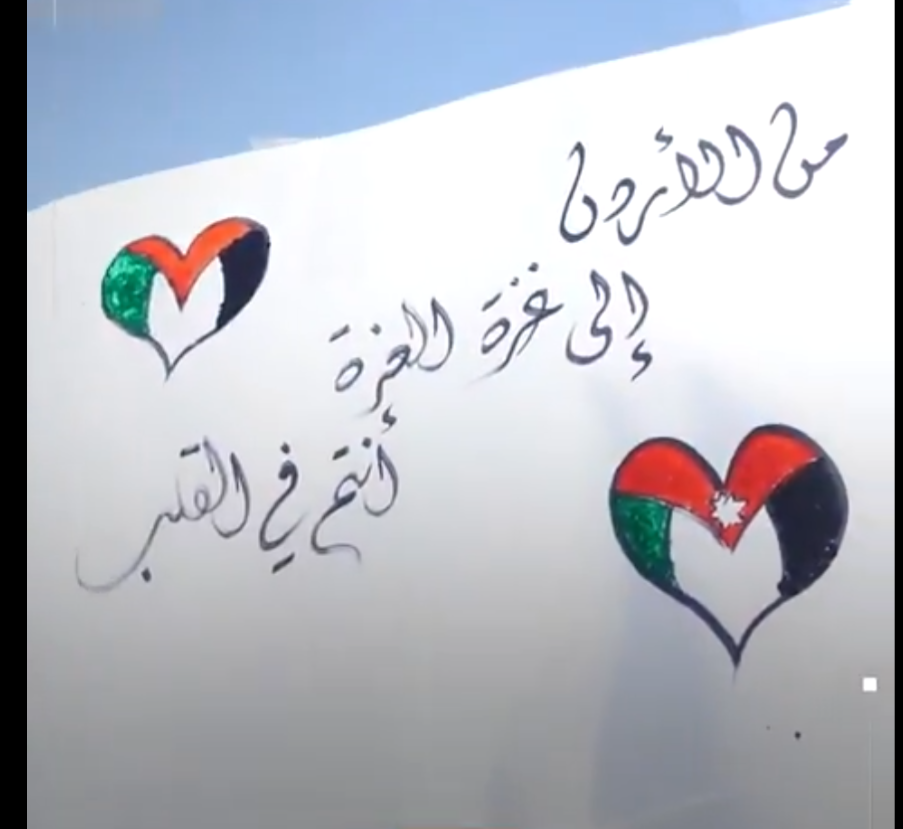 من الأردن
إلى غزة العزة
أنتم في القلب